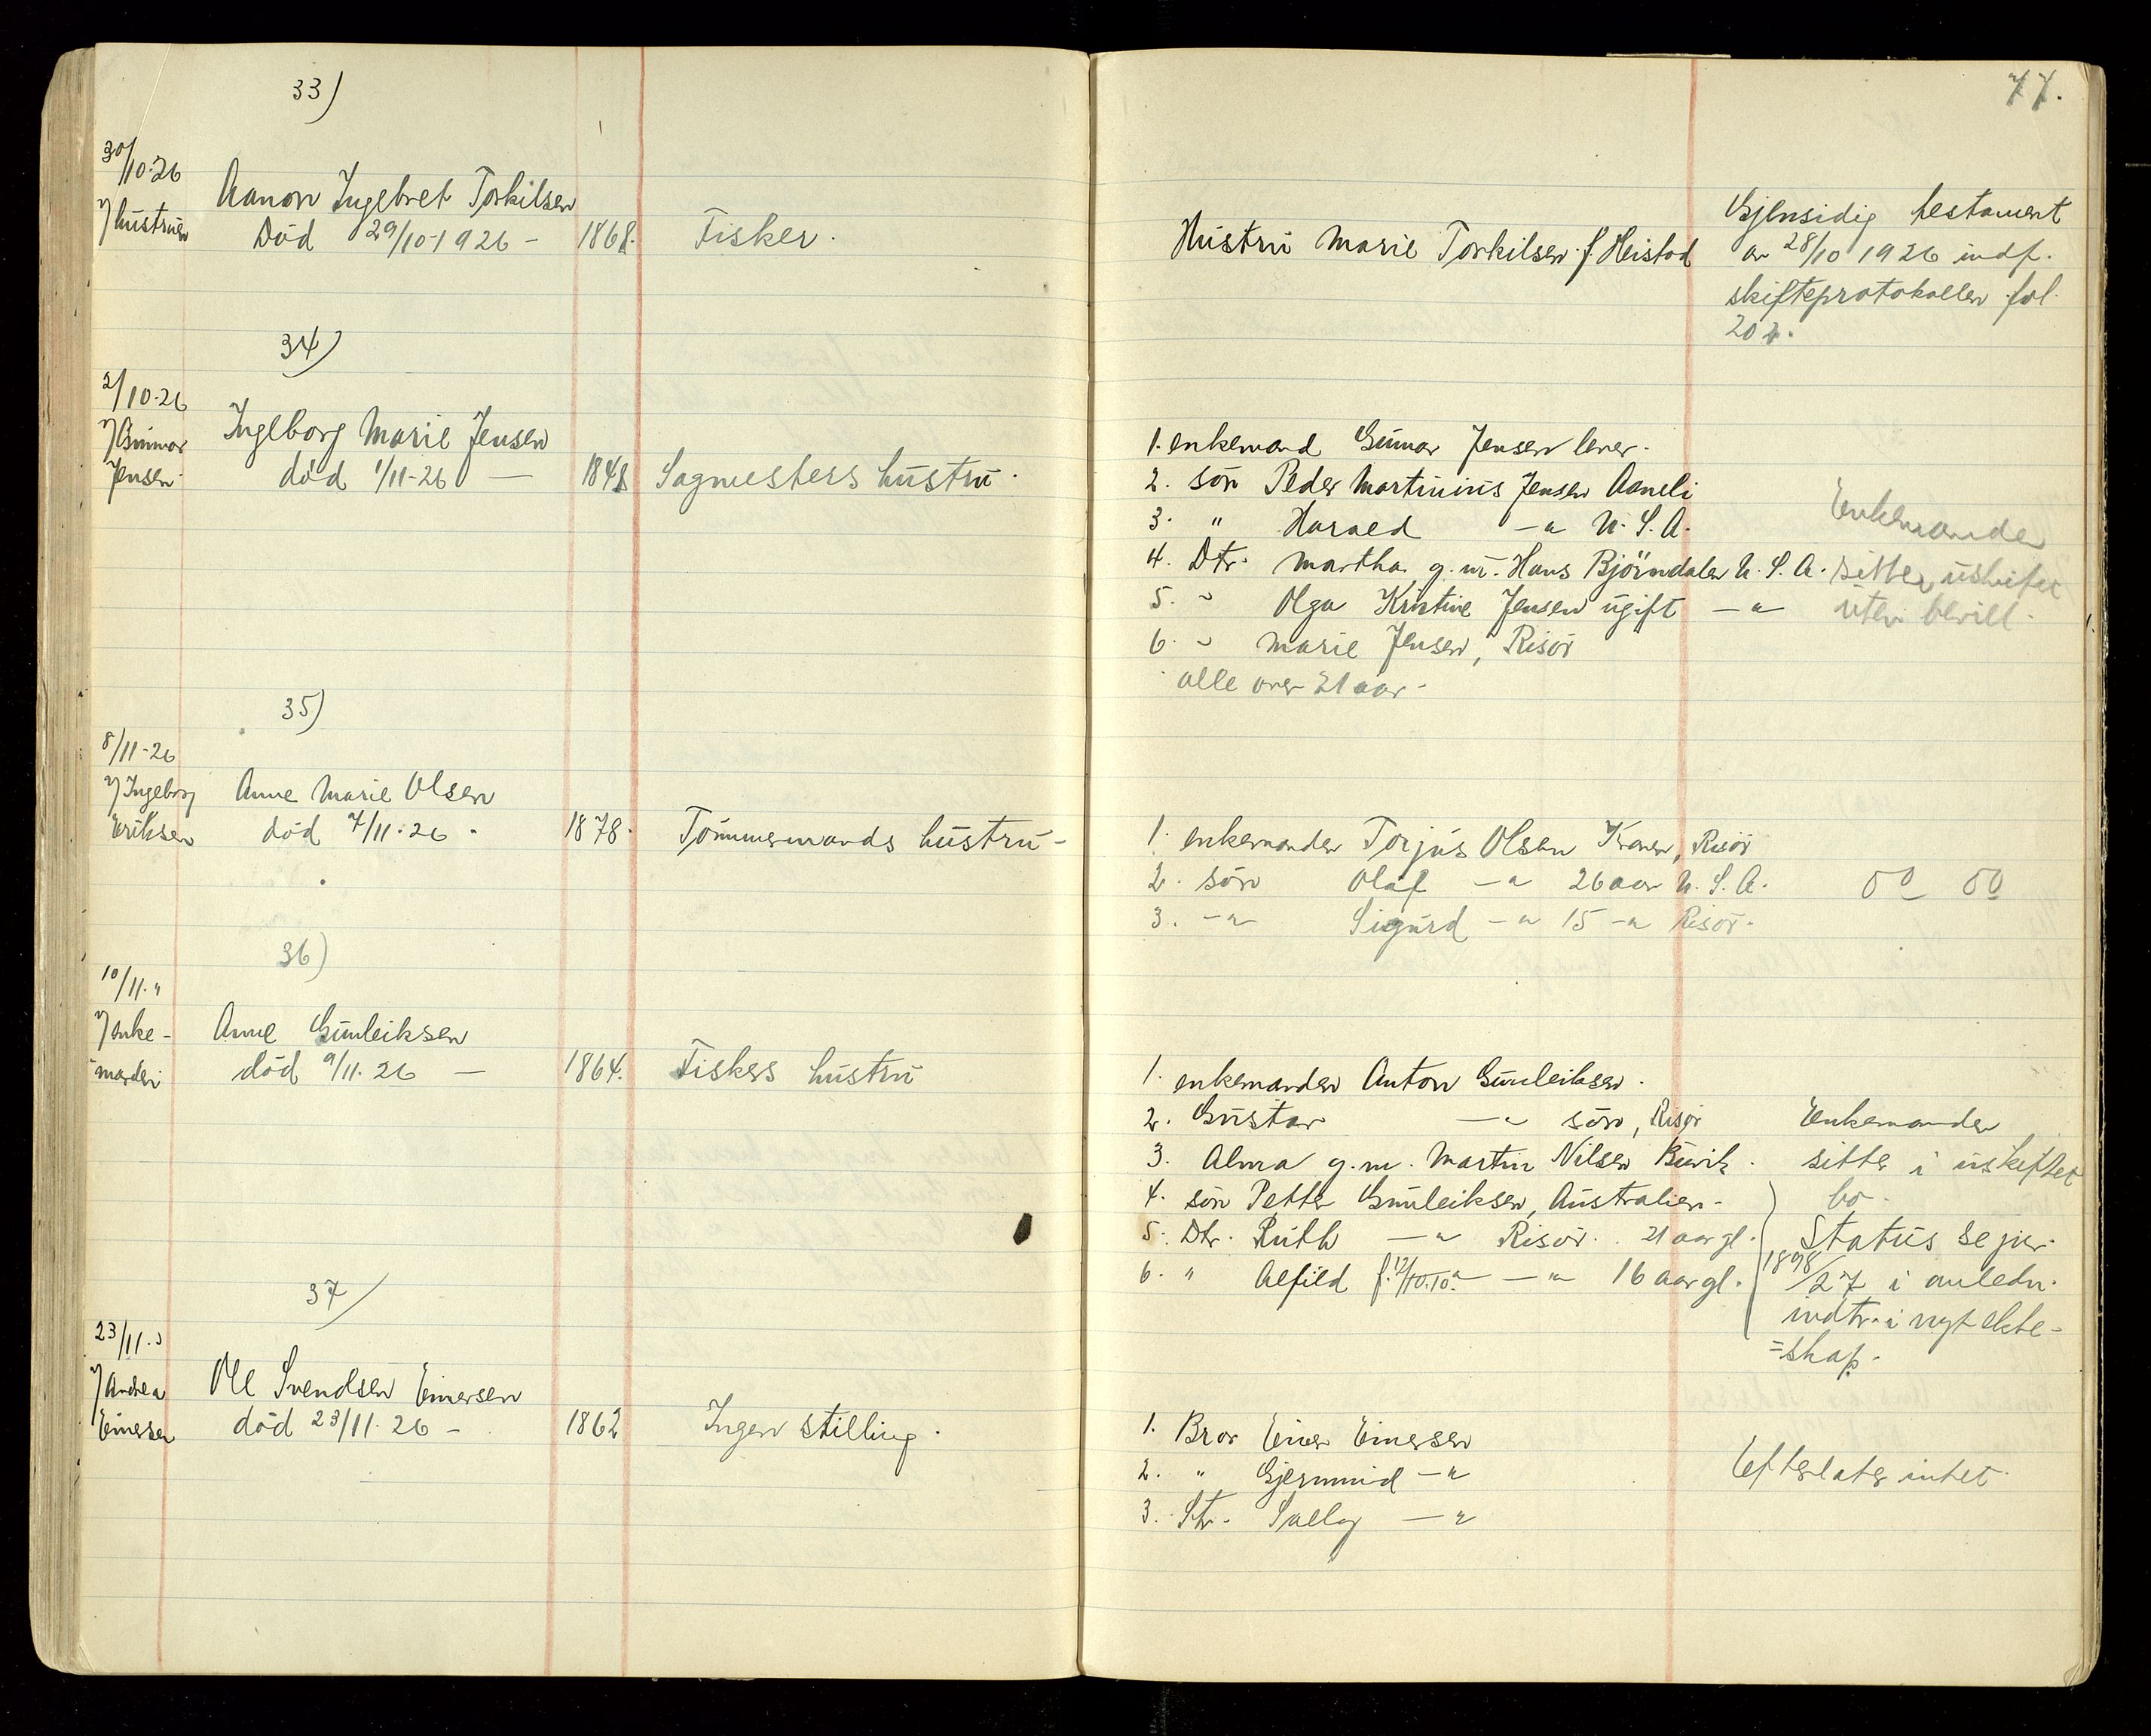 77.
33)
30/10-26
v/hustruen
Aanon Ingebret Torkilsen
Död 29/10-1926 - 1868. Fisker.
Hustru Marie Torkilsen f. Heistad
Gjensidig testament
av 28/10 1926 indf.
skifteprotokollen fol.
202.
34)
2/10-26
v/Gunnar
Jensen.
Ingeborg Marie Jensen
död 1/11-26 — 1848 Sagmesters hustru.
1. enkemand Gunnar Jensen lever.
2. sön Peder Martinius Jensen Aaneli
3. " Harald —" U.S.A.
4. Dtr. Martha g.m. Hans Björndalen U.S.A.
5. " Olga Kristine Jensen ugift —"
6. " Marie Jensen, Risör
alle over 21 aar.
Enkemanden
sitter uskiftet
uten bevill.
35)
8/11-26
v/Ingeborg
Eriksen
Anne Marie Olsen
död 7/11.26. 1878. Tömmermands hustru -
1. enkemanden Torjus Olsen Kranen, Risör
2. sön Olaf —" 26 aar U.S.A.
3. —" Sigurd —" 15 —" Risör.
36)
10/11."
v/enke-
manden
Anne Gunleiksen
död 9/11.26 — 1864. Fiskers hustru
1. enkemanden Anton Gunleiksen.
2. Gustav —" sön, Risör
3. Alma g.m. Martin Nilsen
4. sön Petter Gunleiksen, Australien.
5. Dtr. Ruth —" Risör. 21 aar gl.
6. " Alfild f. 12/10.10. —" —" 16 aar gl.
Enkemanden
sitter i uskiftet
bo.
Status se jnr.
1898/27 i anledn.
indtr. i nyt ekte-
=skap.
37/
23/11."
v/Andrea
Einersen
Ole Svendsen Einersen
död 23/11.26 - 1862 Ingen stilling.
1. Bror Einer Einersen
2. " Gjermund —"
3. Str. —"
Efterlater intet.